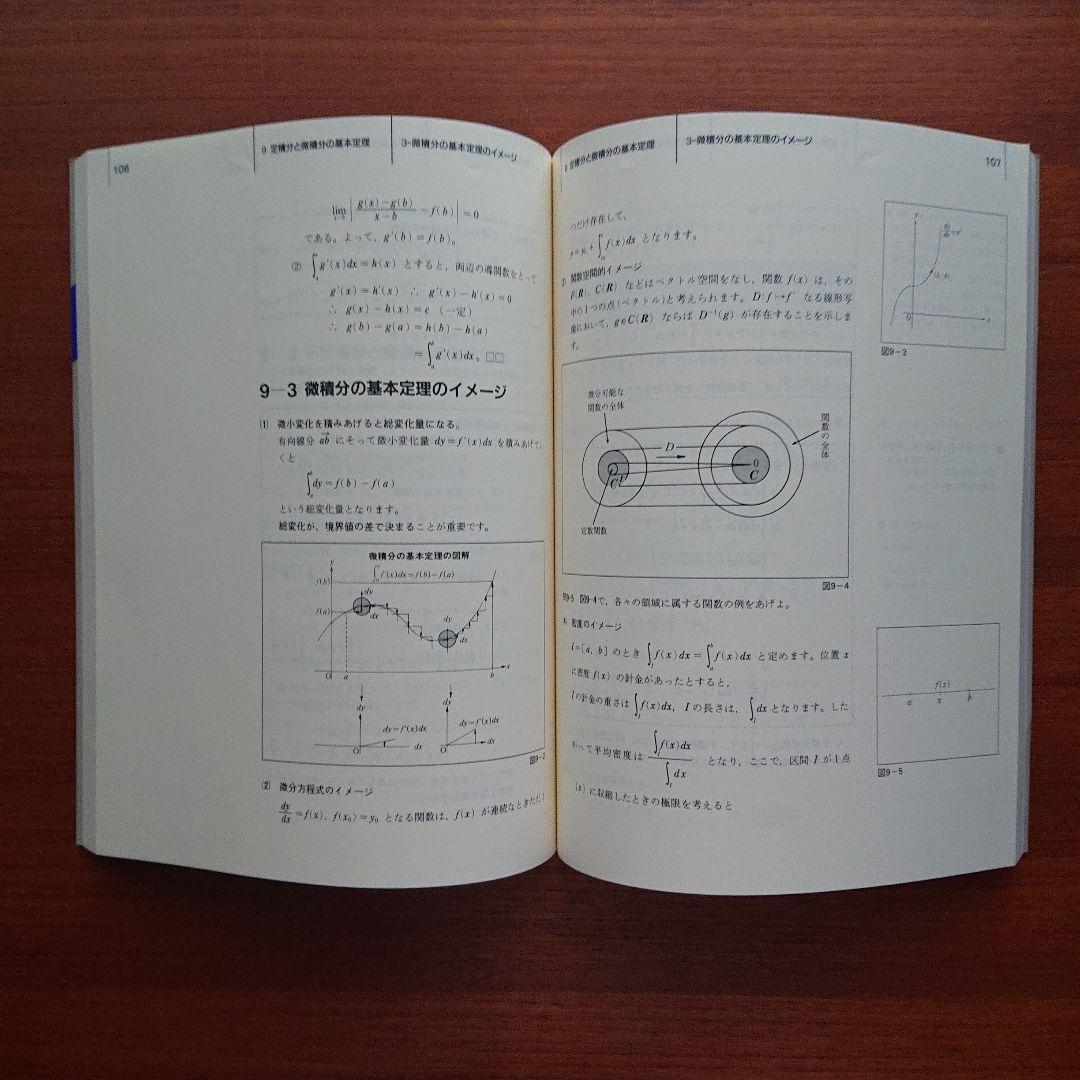 106
9 定積分と微積分の基本定理
3-微積分の基本定理のイメージ
lim | g(x)-g(b) / x-b - f(b) | = 0
である。よって, g'(b)=f(b)。
(2) ∫ g'(x)dx=h(x) とすると, 両辺の導関数をとって
g'(x)=h'(x) ∴ g'(x)-h'(x)=0
∴ g(x)-h(x)=c (一定)
∴ g(b)-g(a)=h(b)-h(a)
=∫ g'(x)dx。□□
9-3 微積分の基本定理のイメージ
(1) 微小変化を積みあげると総変化量になる。
有向線分 ab にそって微小変化量 dy=f'(x)dx を積みあげてい
くと
∫dy=f(b)-f(a)
という総変化量となります。
総変化が, 境界値の差で決まることが重要です。
微積分の基本定理の図解
∫ f'(x)dx=f(b)-f(a)
y
f(b)
f(a)
dy
dx
dy
dx
O a b x
dy
dy=f'(x)dx
O dx
dy
dy=f'(x)dx
O dx
図9-2
(2) 微分方程式のイメージ
dy/dx=f(x), f(x₀)=y₀ となる関数は, f(x) が連続なときただ1
9 定積分と微積分の基本定理
3-微積分の基本定理のイメージ
107
つだけ存在して,
y=y₀+∫ f(x)dx となります。
関数空間的イメージ
F(R), C(R) などはベクトル空間をなし, 関数 f(x) は, その
中の1つの点(ベクトル)と考えられます。D:f↦f' なる線形写
像において, g∈C(R) ならば D⁻¹(g) が存在することを示しま
す。
y
O x
図9-3
微分可能な
関数の全体
D
関数の全体
O
C¹
O
C
定数関数
図9-4
図9-4で, 各々の領域に属する関数の例をあげよ。
密度のイメージ
I=[a, b] のとき ∫f(x)dx=∫f(x)dx と定めます。位置 x
に密度 f(x) の針金があったとすると,
I の針金の重さは ∫f(x)dx, I の長さは, ∫dx となります。した
がって平均密度は ∫f(x)dx / ∫dx となり, ここで, 区間 I が1点
{x} に収縮したときの極限を考えると
f(x)
a x b
図9-5